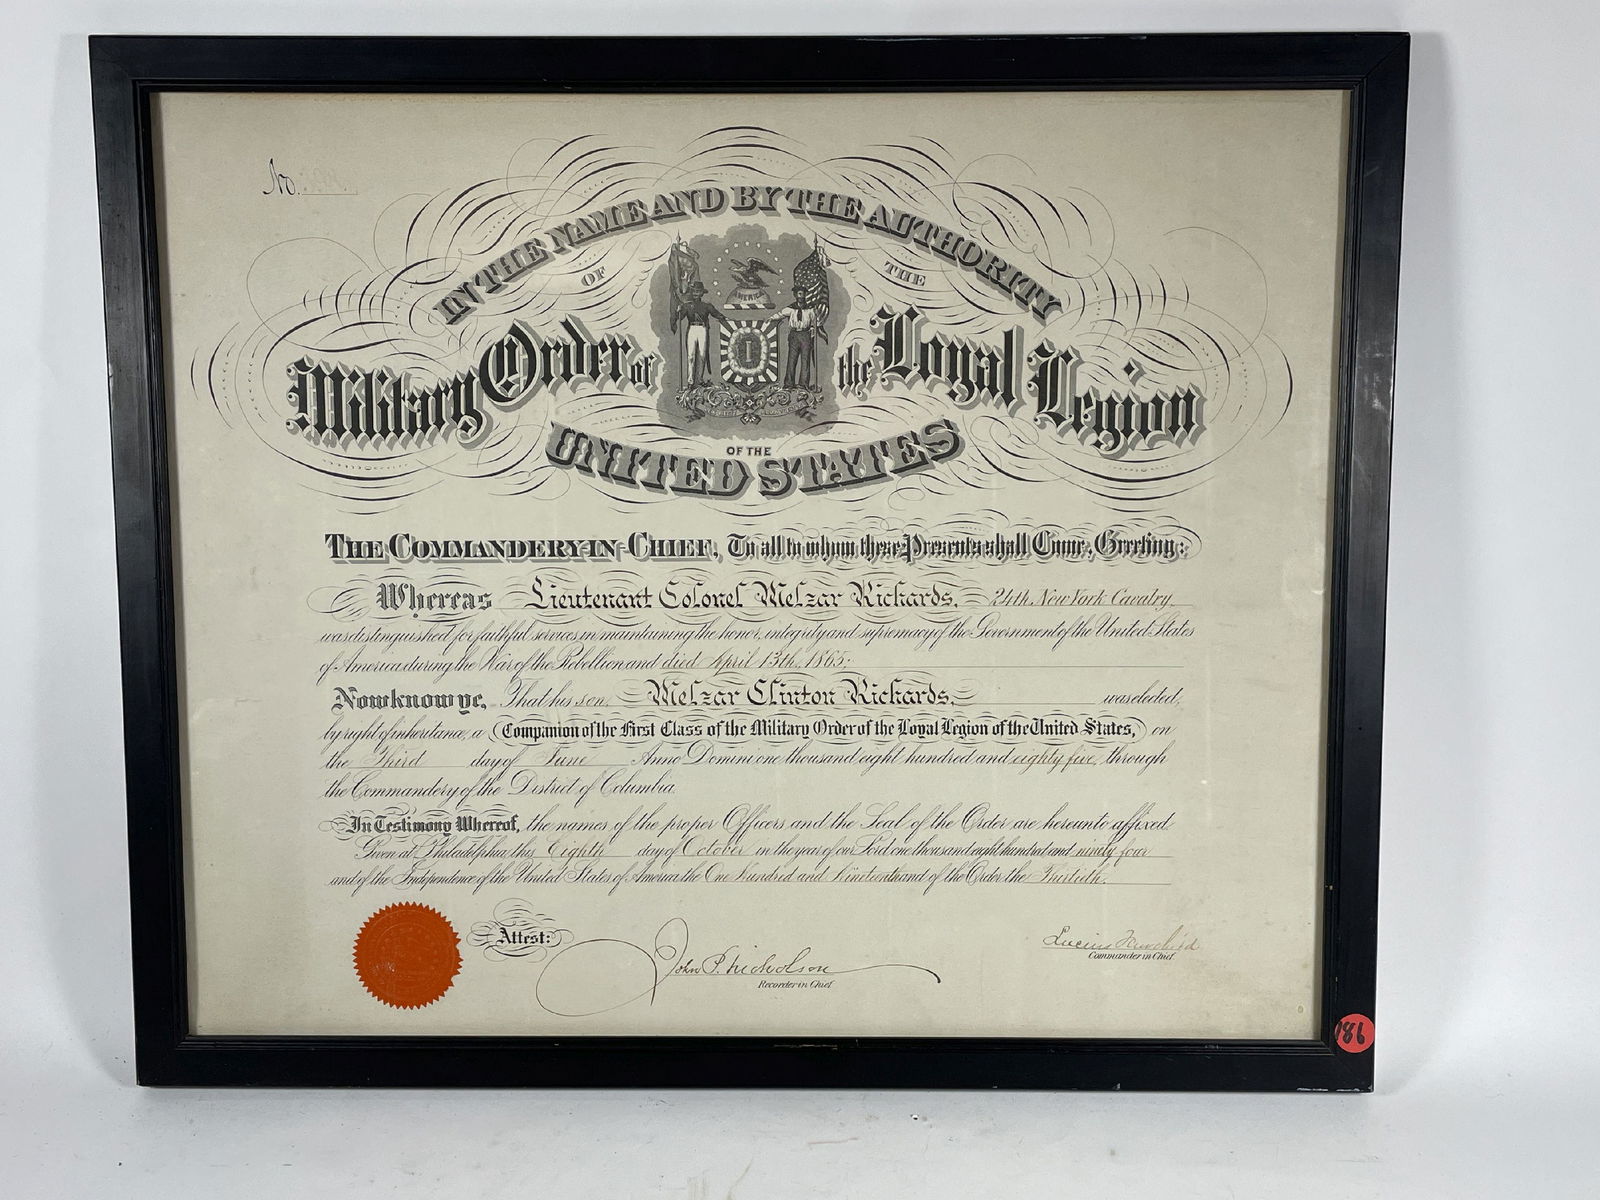 No.
IN THE NAME AND BY THE AUTHORITY
OF THE
AMERICA
Military Order of the Loyal Legion
OF THE
UNITED STATES
THE COMMANDERY-IN-CHIEF, To all to whom these Presents shall Come, Greeting:
Whereas Lieutenant Colonel Melzar Richards, 24th New York Cavalry
was distinguished for faithful services in maintaining the honor, integrity and supremacy of the Government of the United States
of America during the War of the Rebellion and died April 13th, 1865;
Now know ye, That his son, Melzar Clinton Richards, was elected,
by right of inheritance, a Companion of the First Class of the Military Order of the Loyal Legion of the United States, on
the Third day of June Anno Domini one thousand eight hundred and eighty five, through
the Commandery of the District of Columbia.
In Testimony Whereof, the names of the proper Officers and the Seal of the Order are hereunto affixed.
Given at Philadelphia, this Eighth day of October in the year of our Lord one thousand eight hundred and ninety four
and of the Independence of the United States of America the One Hundred and Nineteenth and of the Order the Thirtieth.
Attest:
John P. Nicholson
Recorder in Chief
Lucius Fairchild
Commander in Chief
86